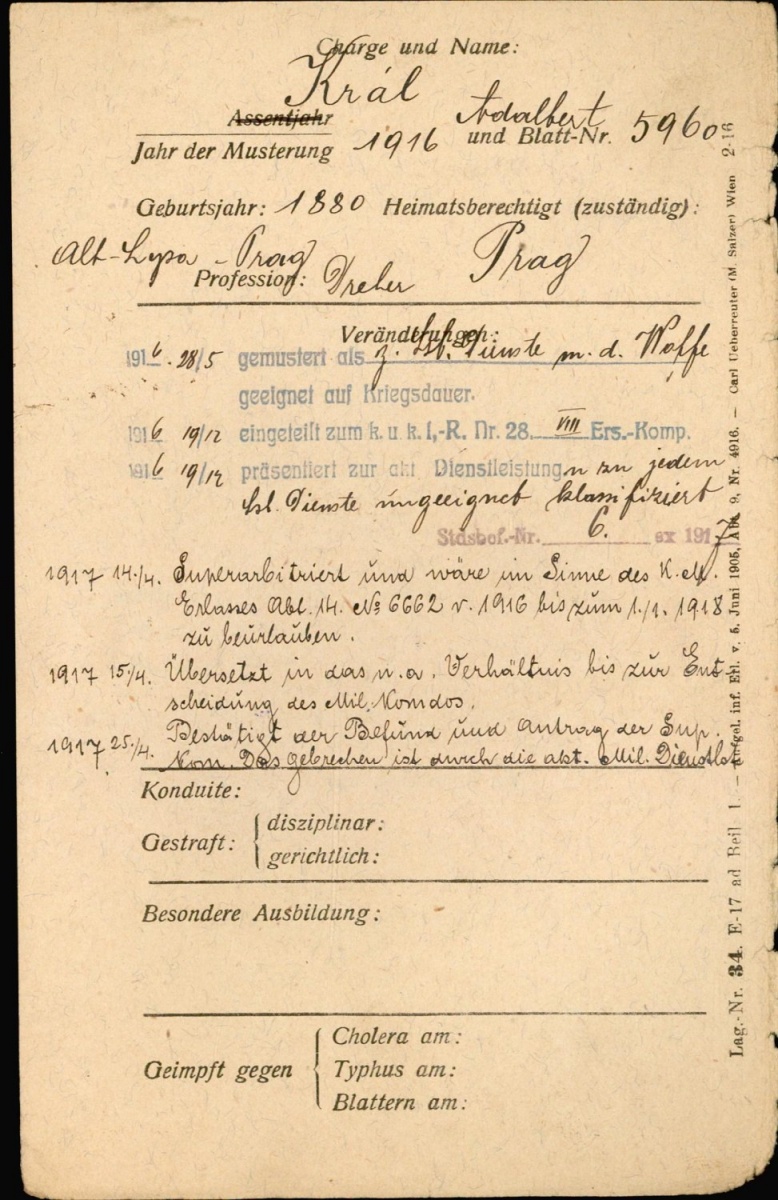 Charge und Name:
Král
Adalbert
Assentjahr
Jahr der Musterung 1916 und Blatt-Nr. 5960
Geburtsjahr: 1880 Heimatsberechtigt (zuständig):
Alt-Lysa - Prag Prag
Profession: Dreher
Veränderungen:
1916. 28/5 gemustert als z. Lst. Dienste m. d. Waffe
geeignet auf Kriegsdauer.
1916 19/12 eingeteilt zum k. u. k. I.-R. Nr. 28. VIII Ers.-Komp.
1916 19/12 präsentiert zur akt Dienstleistung u zu jedem
Lst. Dienste ungeeignet klassifiziert
Stdsbef.-Nr. 6. ex 1917
1917 14./4. Superarbitriert und wäre im Sinne des K.M.
Erlasses Abt. 14. No 6662 v. 1916 bis zum 1./1. 1918
zu beurlauben.
1917 15./4. Übersetzt in das n. a. Verhältnis bis zur Ent-
scheidung des Mil. Komdos.
1917 25./4. Bestätigt der Befund und Antrag der Sup.
Kom. Das Gebrechen ist durch die akt. Mil. Dienstlst
Konduite:
Gestraft: disziplinar:
gerichtlich:
Besondere Ausbildung:
Geimpft gegen Cholera am:
Typhus am:
Blattern am:
Lag.-Nr. 34. E-17 ad Beil 1. — Aufgel. inf. Erl. v. 5. Juni 1905, Abt. 9, Nr. 4916. — Carl Ueberreuter (M. Salzer) Wien 2-16